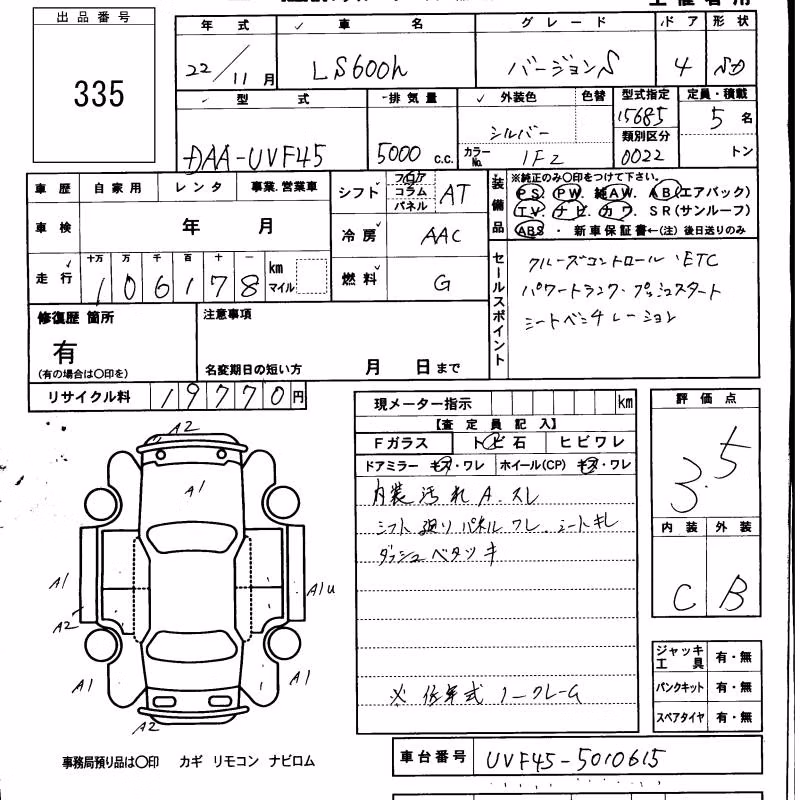 出品番号
335
年式 車名 グレード ドア 形状
22/11月 LS600h バージョンS 4 SD
型式 排気量 外装色 色替 型式指定 定員・積載
DAA-UVF45 5000 c.c. シルバー カラーNo. 1F2 15685 5名
類別区分
0022 トン
車歴 自家用 レンタ 事業.営業車 シフト フロア コラム パネル AT
装備品 ※純正のみ〇印をつけて下さい。
PS. PW. 純AW. AB(エアバック)
TV. ナビ. カワ. SR(サンルーフ)
ABS ・ 新車保証書←(注) 後日送りのみ
車検 年 月 冷房 AAC
走行 十万 万 千 百 十 一 km マイル 燃料 G
106178
セールスポイント
クルーズコントロール、ETC
パワートランク・プッシュスタート
シートベンチレーション
修復歴 箇所 注意事項
有
(有の場合は〇印を) 名変期日の短い方 月 日まで
リサイクル料 19770円
現メーター指示 km
【査定員記入】
Fガラス トビ石 ヒビワレ
ドアミラー キズ・ワレ ホイール(CP) キズ・ワレ
内装汚れ A.スレ
シフト廻りパネルワレ、シートキレ
ダッシュベタツキ
※低年式ノークレーム
評価点
3.5
内装 外装
C B
ジャッキ工具 有・無
パンクキット 有・無
スペアタイヤ 有・無
A2
A1
A1
A2
A1u
A1
A1
A2
事務局預り品は〇印 カギ リモコン ナビロム
車台番号 UVF45-5010615